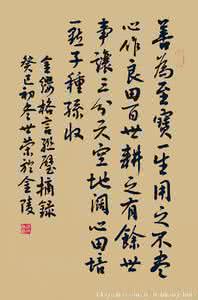 善為至寶一生用之不盡
心作良田百世耕之有餘世
事讓三分天空地闊心田培
一點子種孫收
金纓格言聯璧摘錄
癸巳初冬世榮於金陵